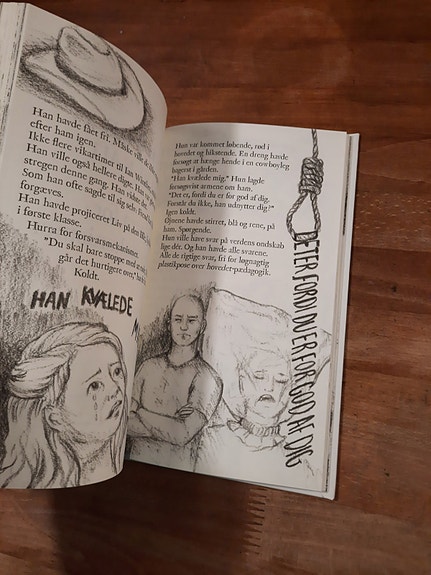 Han havde fået fri. Måske ville de
efter ham igen.
Ikke flere vikartimer til Jan Winther
Han ville også hellere dige. Han
stregen denne gang. Han vidste de
Som han ofte sagde til sig selv
forgæves.
Han havde projiceret Liv på den lille
i første klasse.
Hurra for forsvarsmekanismer.
"Du skal bare stoppe med at
går det hurtigere over,"
Koldt.
HAN KVÆLEDE
Hun var kommet løbende, rød i
hovedet og hikstende. En dreng havde
forsøgt at hænge hende i en cowboyleg
bagerst i gården.
"Han kvælede mig." Hun lagde
forsøgsvist armene om ham.
"Det er, fordi du er for god af dig.
Forstår du ikke, han udnytter dig?"
Igen koldt.
Øjnene havde stirret, blå og rene, på
ham. Spørgende.
Hun ville have svar på verdens ondskab
lige dér. Og han havde alle svarene.
Alle de rigtige svar, fri for løgnagtig
plastikpose over hovedet-pædagogik.
DET ER FORDI DU ER FOR GOD AF DIG